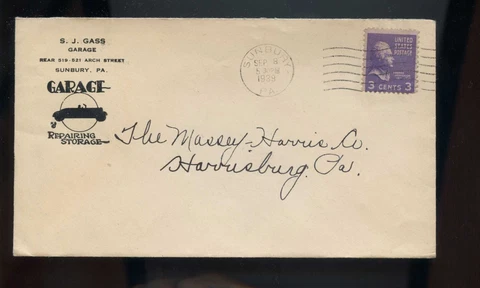 S. J. GASS
GARAGE
REAR 519-521 ARCH STREET
SUNBURY, PA.
GARAGE
REPAIRING
STORAGE
SUNBURY
SEP 6
1939
PA.
UNITED
STATES
POSTAGE
3 CENTS 3
The Massey-Harris Co.
Harrisburg Pa.